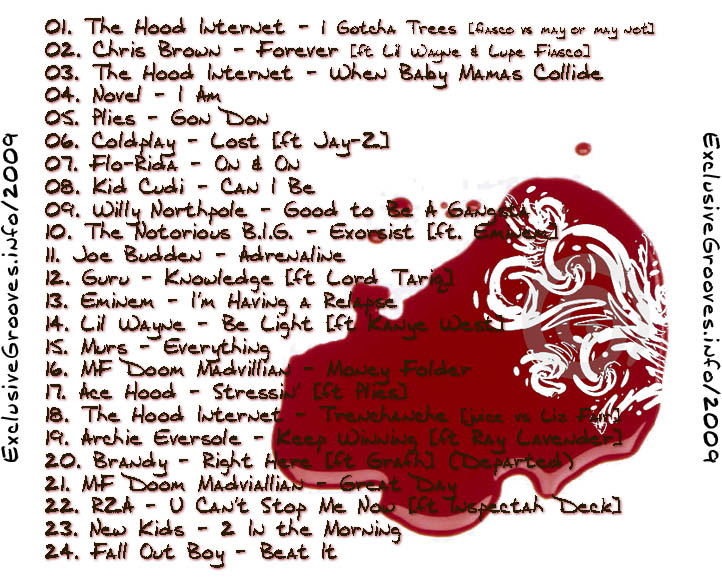 01. The Hood Internet - I Gotcha Trees [fiasco vs may or may not]
02. Chris Brown - Forever [ft Lil Wayne & Lupe Fiasco]
03. The Hood Internet - When Baby Mamas Collide
04. Novel - I Am
05. Plies - Gon Don
06. Coldplay - Lost [ft Jay-Z]
07. Flo-Rida - On & On
08. Kid Cudi - Can I Be
09. Willy Northpole - Good to Be A Gangsta
10. The Notorious B.I.G. - Exorsist [ft. Eminem]
11. Joe Budden - Adrenaline
12. Guru - Knowledge [ft Lord Tariq]
13. Eminem - I'm Having a Relapse
14. Lil Wayne - Be Light [ft Kanye West]
15. Murs - Everything
16. MF Doom Madvillian - Money Folder
17. Ace Hood - Stressin' [ft Plies]
18. The Hood Internet - Trenchanche [juice vs Liz Fair]
19. Archie Eversole - Keep Winning [ft Ray Lavender]
20. Brandy - Right Here [ft Grafh] (Departed)
21. MF Doom Madviallian - Great Day
22. RZA - U Can't Stop Me Now [ft Inspectah Deck]
23. New Kids - 2 In the Morning
24. Fall Out Boy - Beat It
ExclusiveGrooves.info/2009
ExclusiveGrooves.info/2009